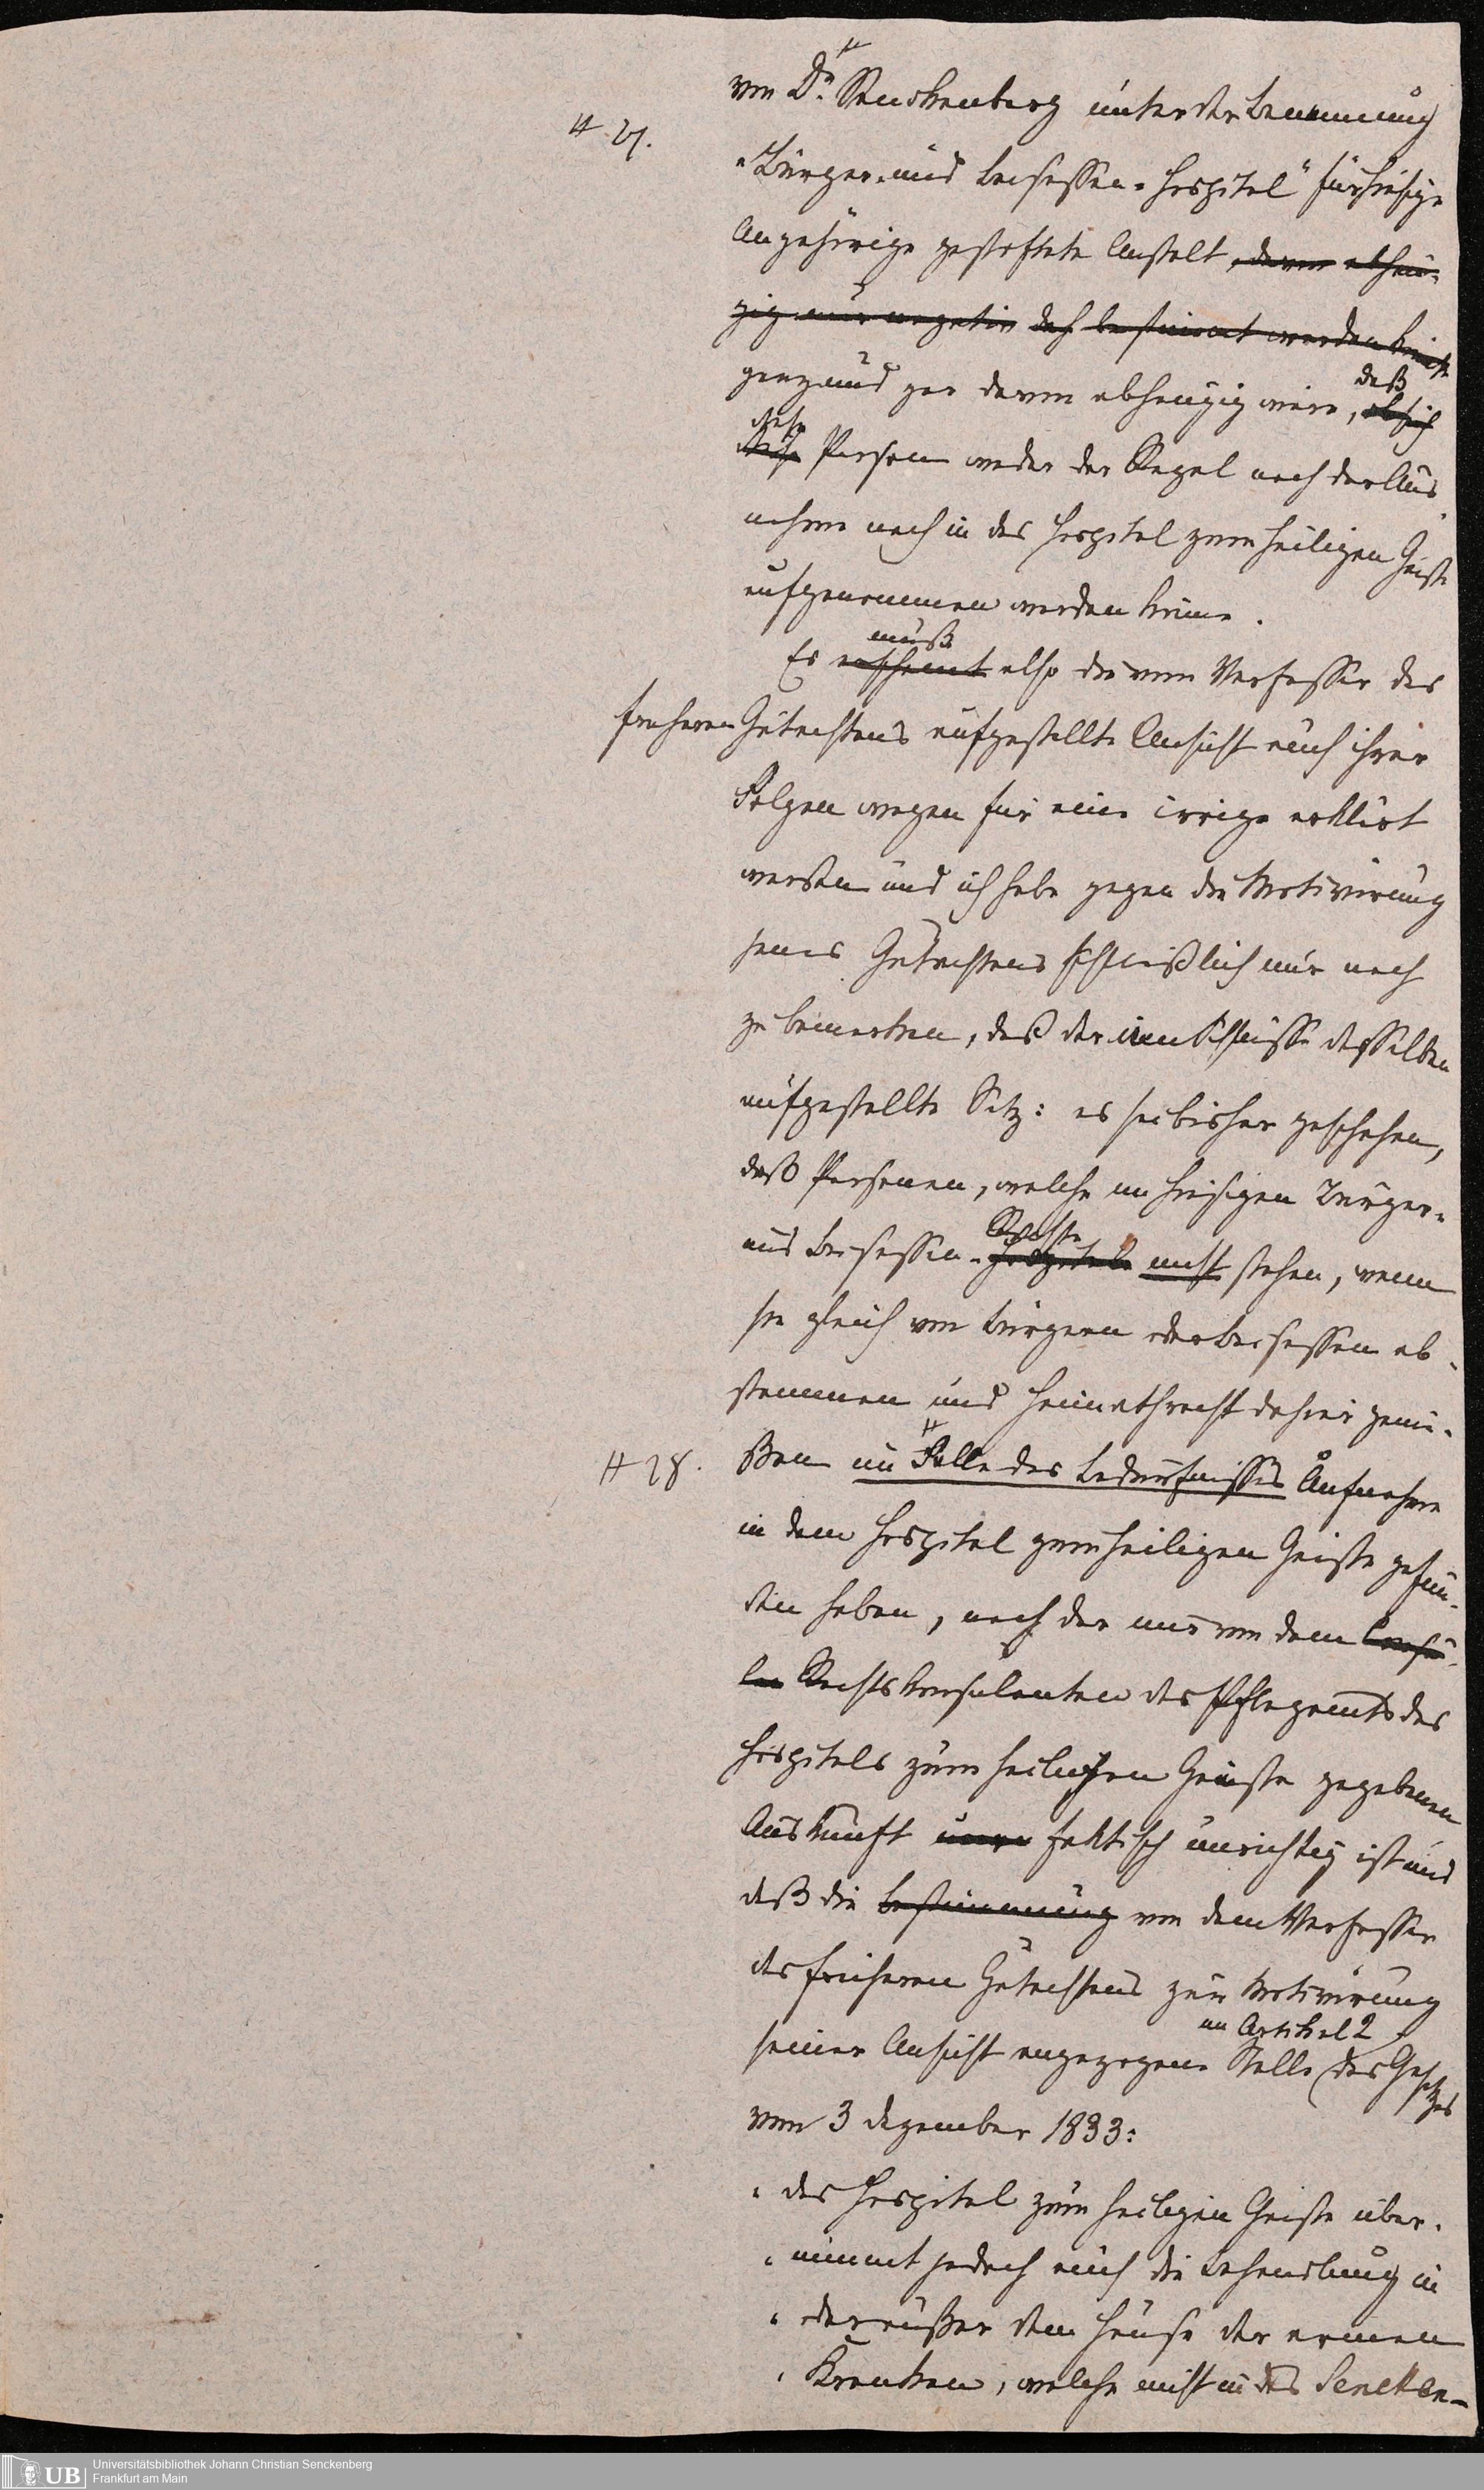 von Dr. Senckenberg unter der Benennung
# 27.
"Bürger- und Beisassen-Hospital" für hiesige
Angehörige gestiftete Anstalt, davon abhän-
gig nur negativ daß bestimmt werden könnte
ganz und gar davon abhängig wäre, ob sich daß
diese Person weder der Regel noch der Aus-
nahme nach in das Hospital zum heiligen Geiste
aufgenommen werden könne.
Es erscheint muß also die vom Verfasser des
früheren Gutachtens aufgestellte Ansicht auch ihrer
Folgen wegen für eine irrige erklärt
werden und ich habe gegen die Motivirung
jenes Gutachtens schließlich nur noch
zu bemerken, daß der im Schlusse desselben
aufgestellte Satz: es sei bisher geschehen,
daß Personen, welche im hiesigen Bürger-
und Beisassen-Hospitale Rechte nicht stehen, wenn
sie gleich von Bürgern oder Beisassen ab-
stammen und Heimathrecht dahier genie-
# 28.
ßen im Falle des Bedürfnisses Aufnahme
in dem Hospital zum heiligen Geiste gefun-
den haben, nach der mir von dem Consu-
len Rechtskonsulenten des Pflegamts des
Hospitals zum heiligen Geiste gegebenen
Auskunft faktisch unrichtig ist und
daß die Bestimmung von dem Verfasser
des früheren Gutachtens zur Motivirung
seiner Ansicht angezogene Stelle im Artikel 2 des Gesetzes
vom 3 Dezember 1833:
"das Hospital zum heiligen Geiste über-
"nimmt jedoch auch die Behandlung in
"oder außer dem Hause der armen
"Kranken, welche nicht in das Senckbe-
Universitätsbibliothek Johann Christian Senckenberg
Frankfurt am Main
UB